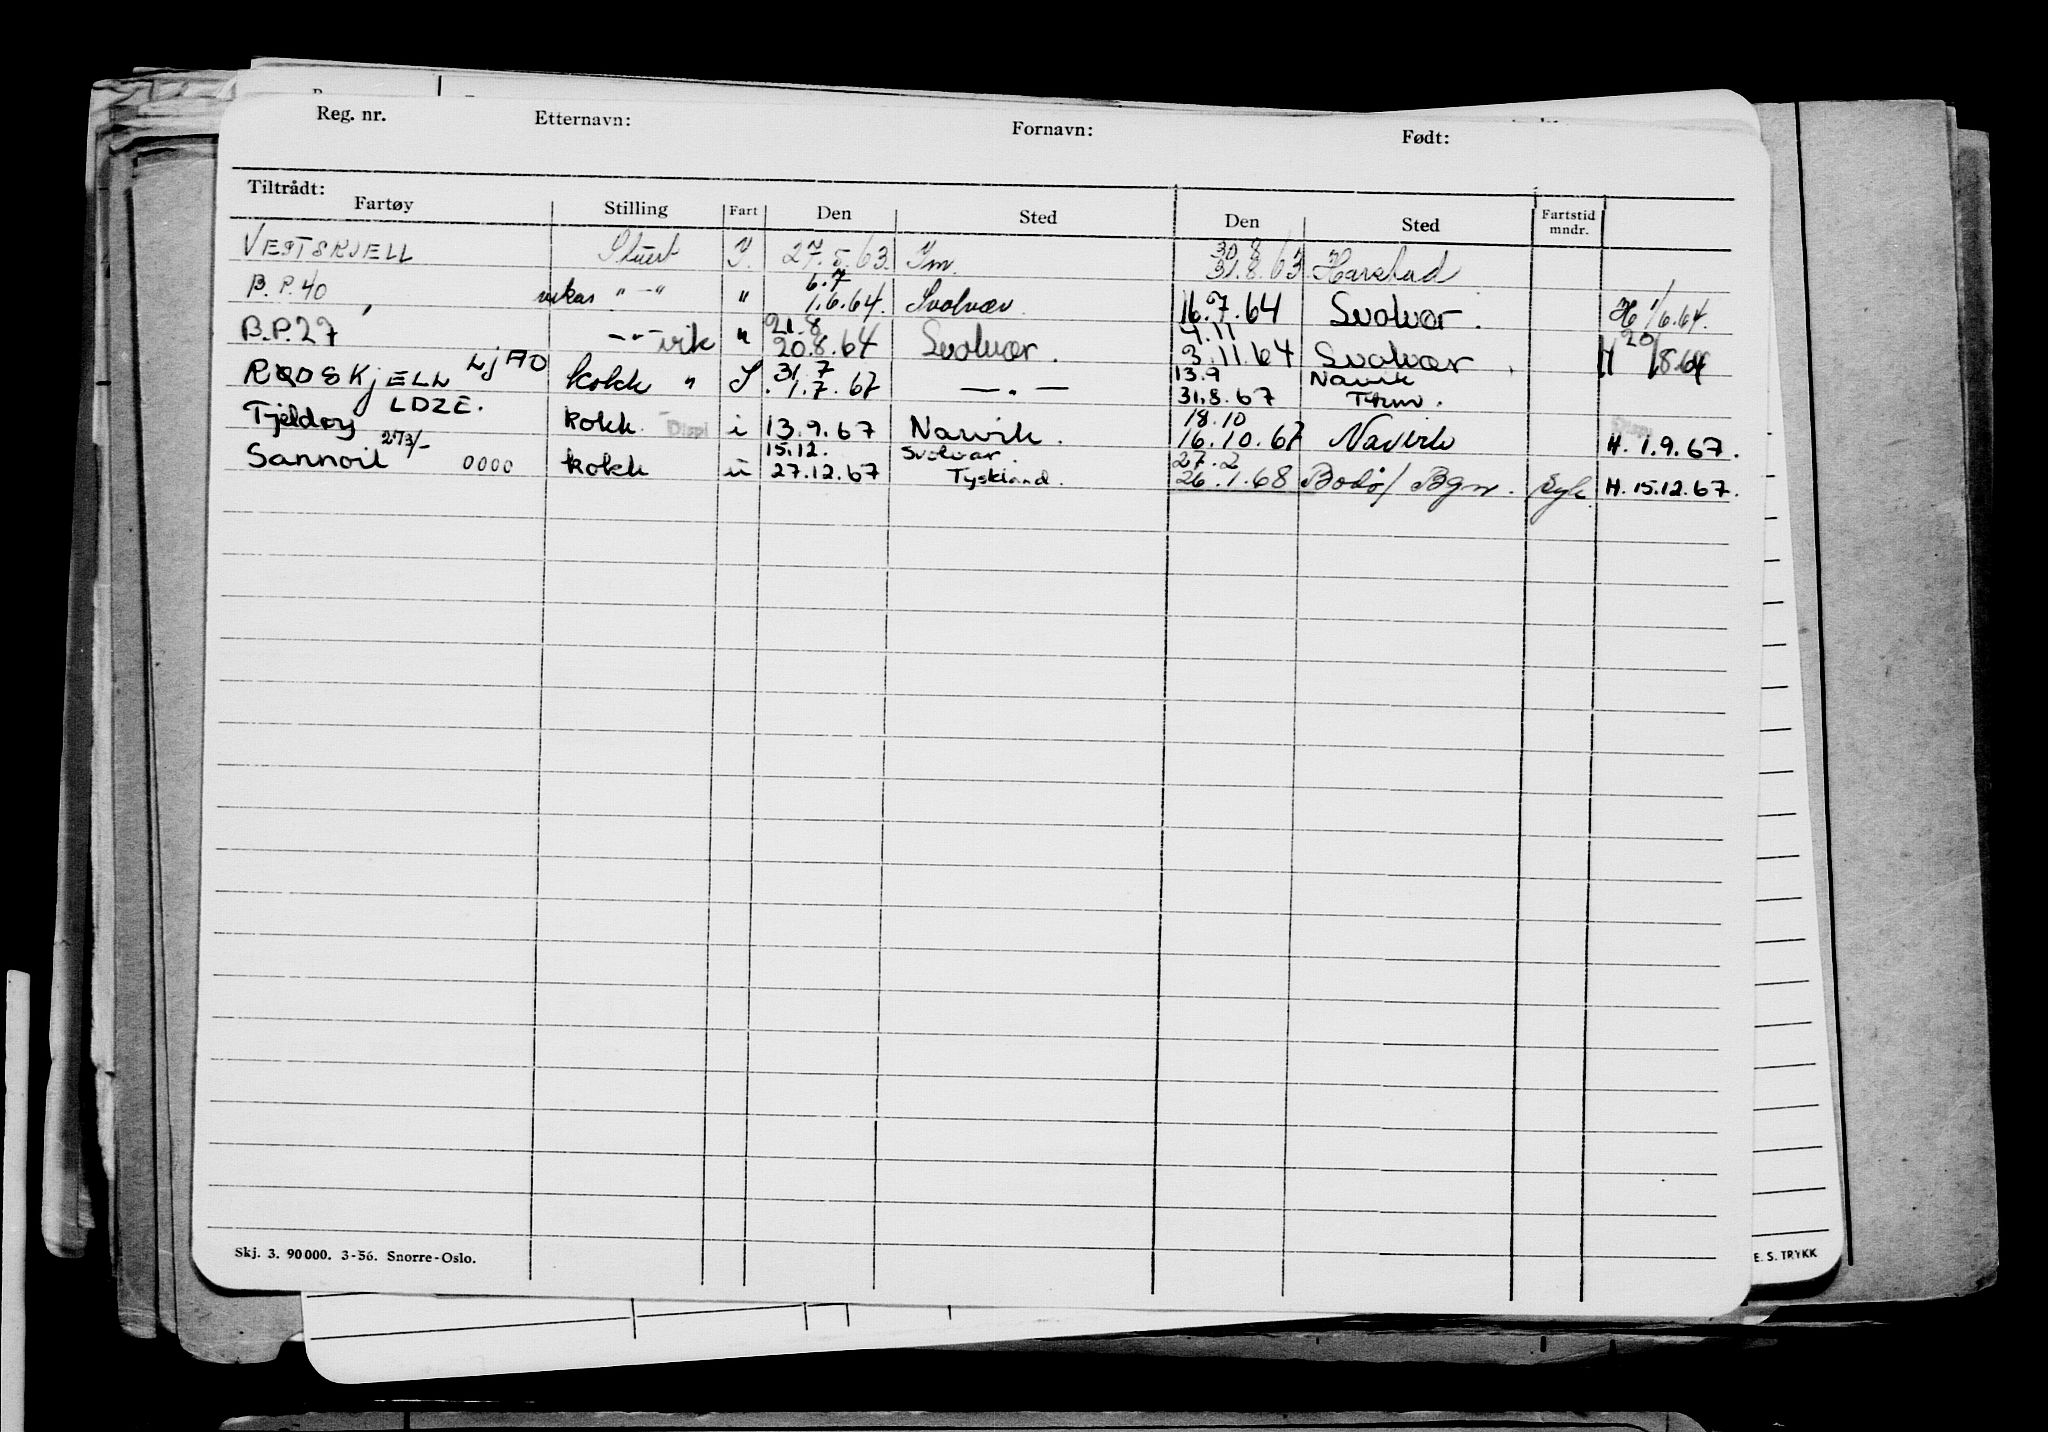 Reg. nr. Etternavn: Fornavn: Født:
Tiltrådt:
Fartøy Stilling Fart Den Sted Den Sted Fartstid mndr.
VESTSKJELL Stuert 27.5.63. 30.8 31.8.63. Harstad
B.P.40 vikar " - " " 6.7 1.6.64. Svolvær 16.7.64 Svolvær. H 1/6.64.
B.P.27 -"- vik " 21.8 20.8.64 Svolvær. 4.11 3.11.64 Svolvær. H 20/8.64
RØDSKJELL LJAO kokk " 31.7 1.7.67 — " — 13.9 31.8.67 Narvik
Tjeldøy LDZE. kokk. Disp i 13.9.67 Narvik. 18.10 16.10.67 Narvik Disp H. 1.9.67.
Sannoil 273/- 0000 kokk u 15.12. 27.12.67 Svolvær. Tyskland. 27.2 26.1.68 Bodø / Bgn. Syk H. 15.12.67.
Skj. 3. 90 000. 3-56. Snorre-Oslo.
E. S. TRYKK